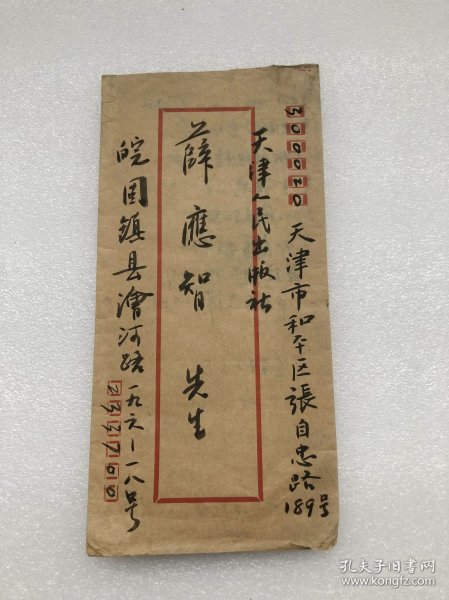 300020
天津市和平区張自忠路189号
天津人民出版社
薛應智 先生
皖固鎮县澮河路一九六-一八号
233700
孔夫子旧书网
www.kongfz.com